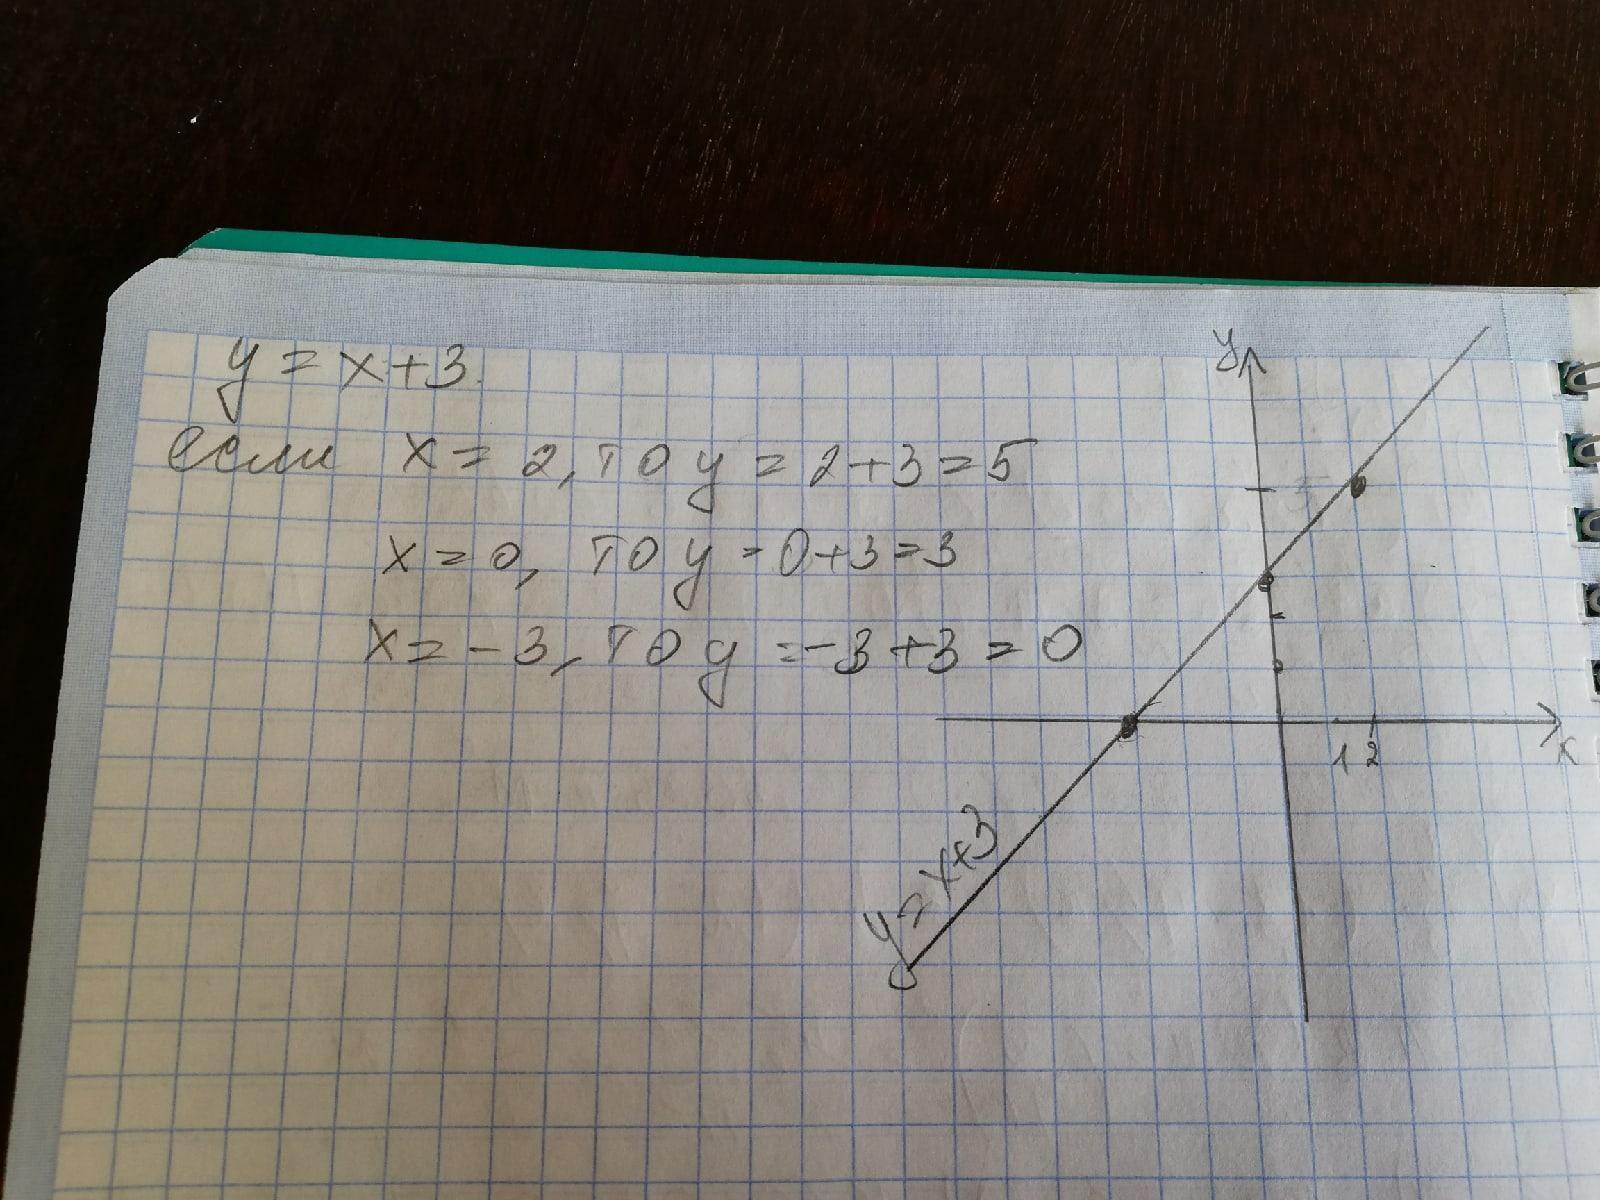 y = x+3
если x = 2, то y = 2+3=5
x = 0, то y = 0+3=3
x = -3, то y = -3+3 = 0
y
5
1 2
x
y = x+3